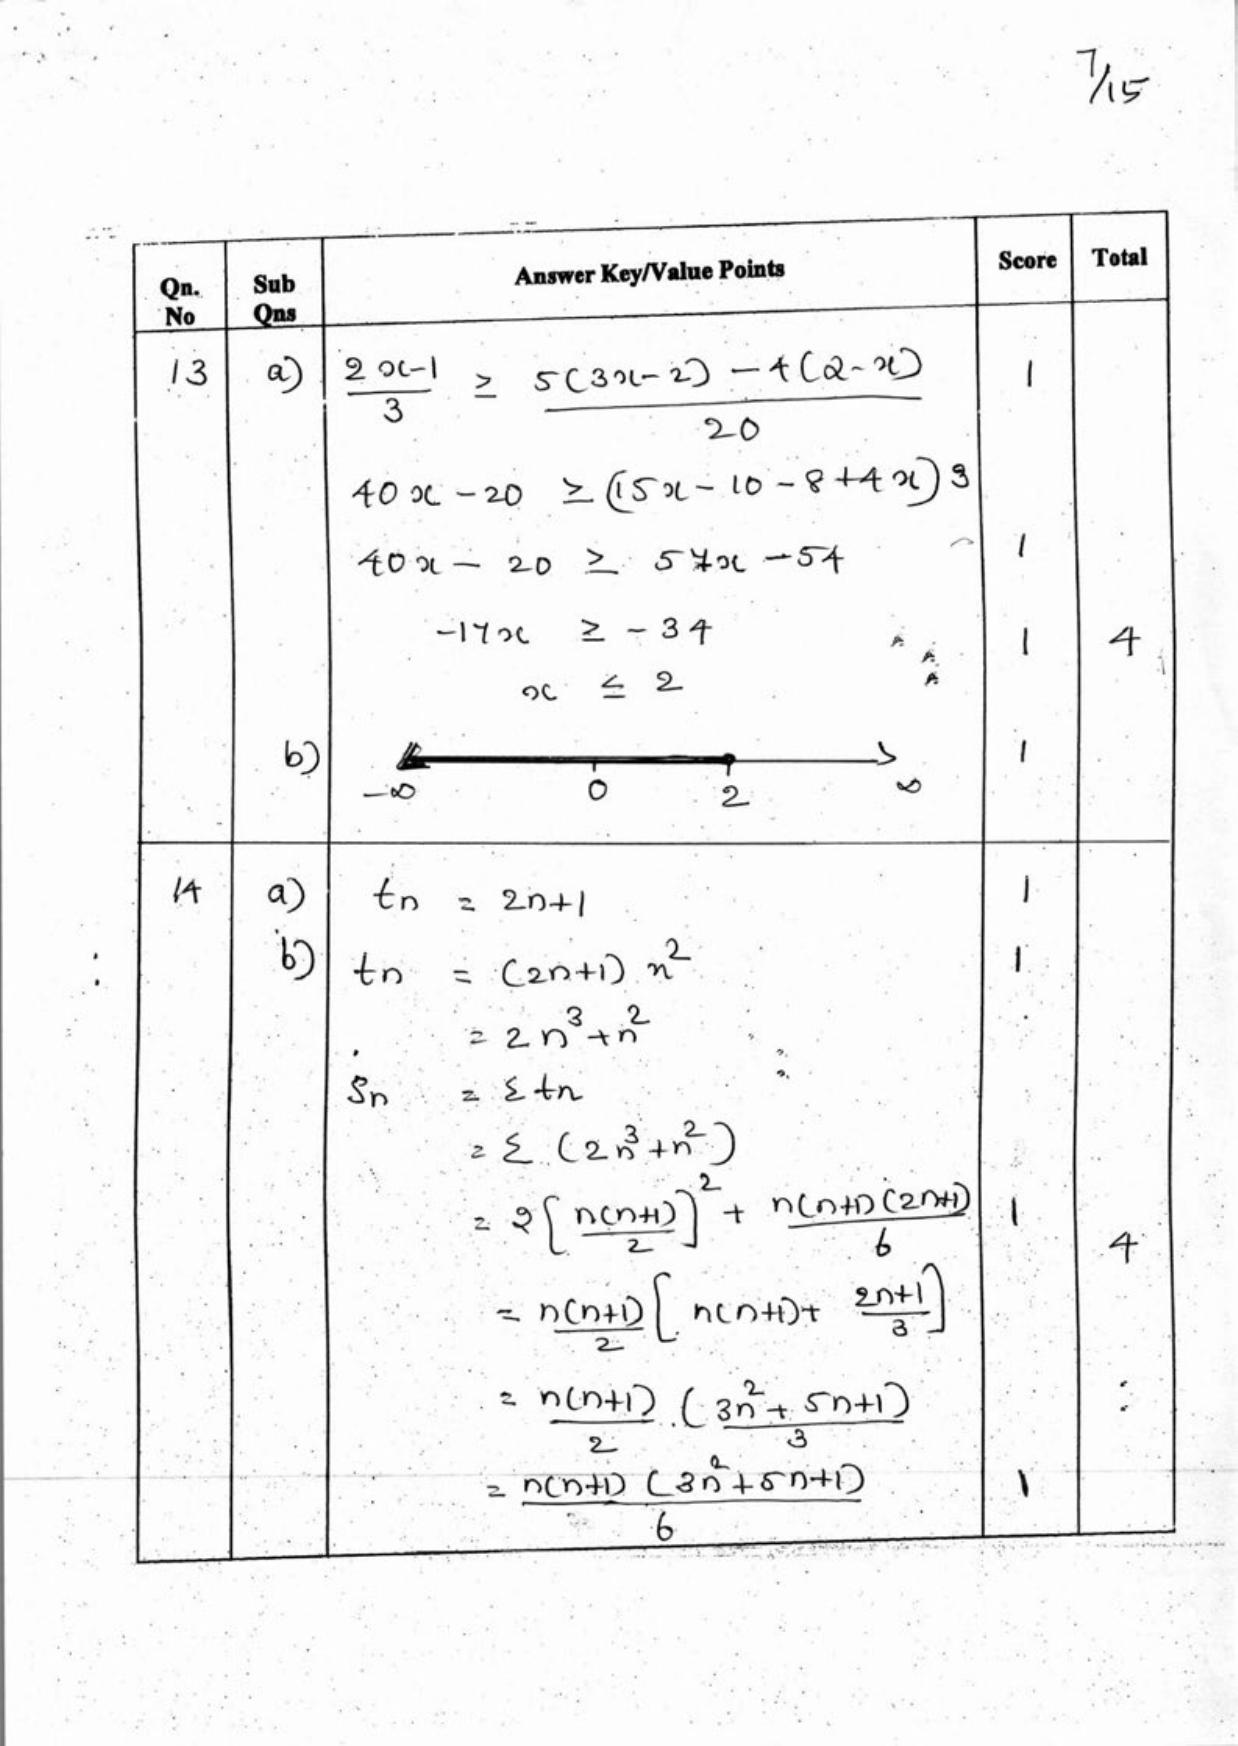 7/15
Qn. No | Sub Qns | Answer Key/Value Points | Score | Total
13 a) (2x-1)/3 ≥ (5(3x-2) - 4(2-x))/20 1
40x - 20 ≥ (15x - 10 - 8 + 4x) 3
40x - 20 ≥ 57x - 54 1
-17x ≥ -34 1 4
x ≤ 2
b) 1
-∞ 0 2 ∞
14 a) tn = 2n+1 1
b) tn = (2n+1) n² 1
= 2n³ + n²
Sn = Σ tn
= Σ (2n³ + n²)
= 2[n(n+1)/2]² + n(n+1)(2n+1)/6 1
4
= n(n+1)/2 [n(n+1) + (2n+1)/3]
= n(n+1)/2 . (3n² + 5n + 1)/3
= n(n+1)(3n² + 5n + 1)/6 1